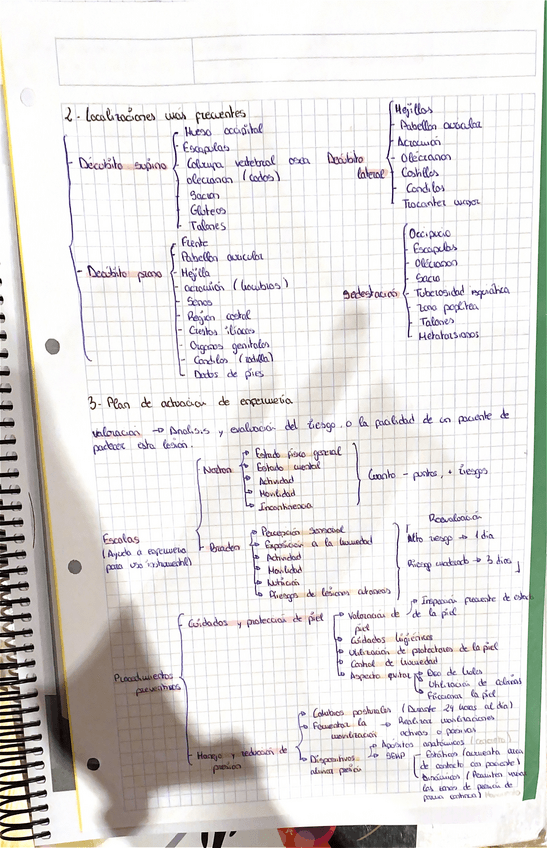 2- Localizaciones más frecuentes
Decúbito supino
Hueso occipital
Escápulas
Columna vertebral osea
olecranon (codos)
Sacro
Glúteos
Talones
Decúbito lateral
Mejillas
Pabellón auricular
Acromión
Olécranon
Costillas
Condilos
Trocanter mayor
Decúbito prono
Frente
Pabellón auricular
Mejilla
acromión (hombros)
Senos
Región costal
Crestas ilíacas
Organos genitales
Condilos (rodilla)
Dedos de pies
Sedestación
Occipucio
Escapulas
Olécranon
Sacro
Tuberosidad isquiática
Zona poplítea
Talones
Metatarsianos
3- Plan de actuacion de enfermeria
Valoracion → Analisis y evaluación del riesgo, o la posibilidad de un paciente de
padecer esta lesión.
Escalas
(Ayuda a enfermera
para uso instrumental)
Norton
Estado físico general
Estado mental
Actividad
Movilidad
Incontinencia
Cuanto - puntos, + riesgos
Braden
Percepción sensorial
Exposición a la humedad
Actividad
Movilidad
Nutrición
Riesgos de lesiones cutaneas
Reevaluación
Alto riesgo → 1 dia
Riesgo moderado → 3 dias
Procedimientos
preventivos
Cuidados y protección de piel
Valoración de piel
Inspección frecuente de estado
de la piel
Cuidados higiénicos
Utilización de protectores de la piel
Control de humedad
Aspecto evitar
Uso de
Utilización de colonias
Friccionar la piel
Manejo y reducción de
presión
Cambios posturales (Durante 24 horas al día)
Fomentar la movilización
Realizar movilizaciones
activas o pasivas
Dispositivos
alivian presión
Apósitos anatómicos
SEMP
Estáticos (aumenta area
de contacto con paciente)
Dinámicos (Permiten variar
las zonas de presión de